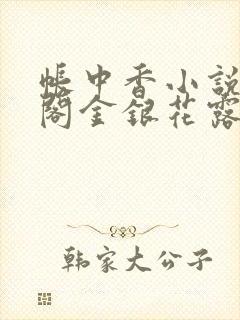 帳中香小說
閣金銀花露
韩家大公子